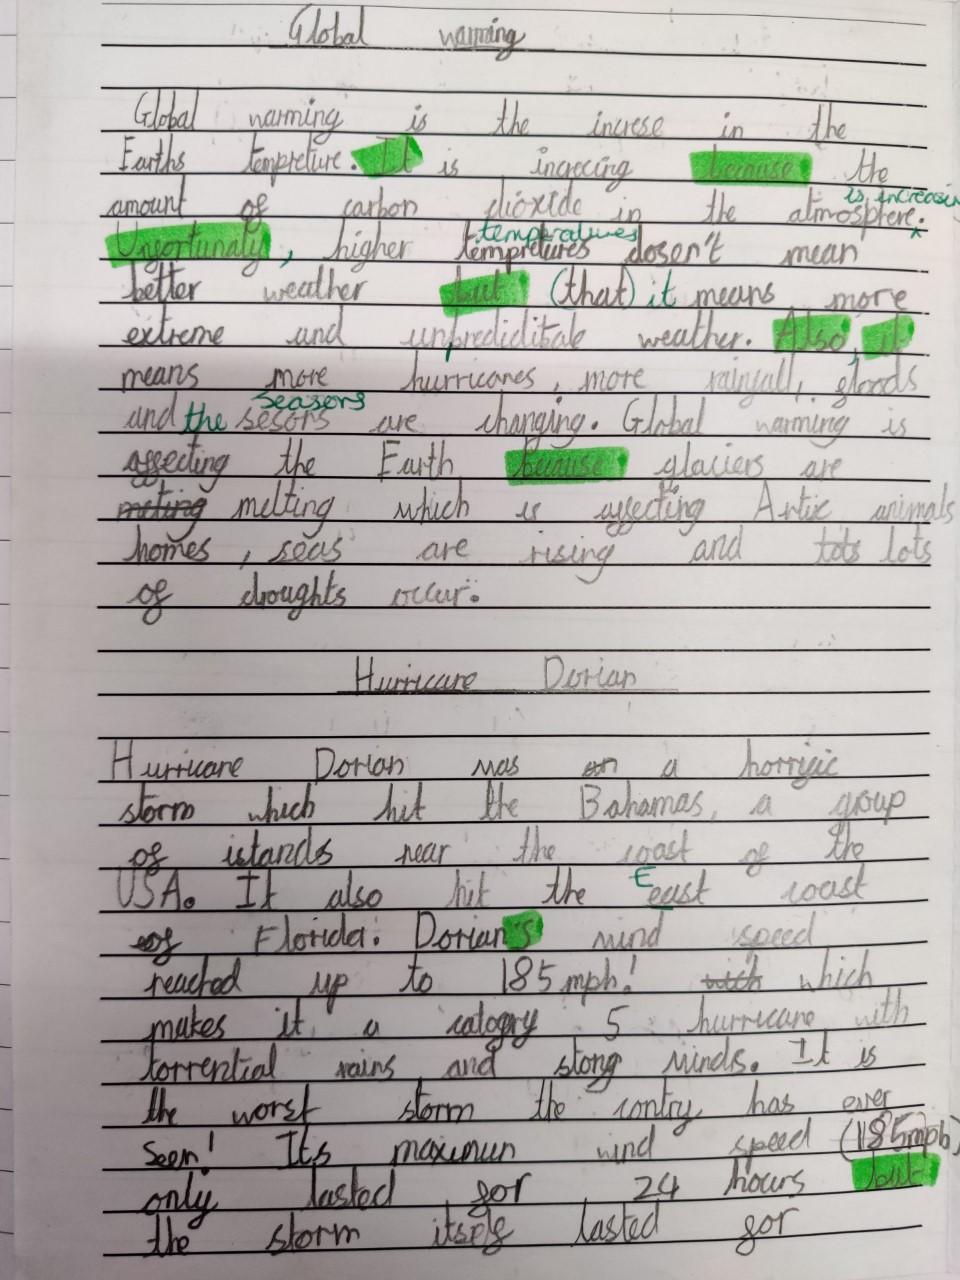 Global warming
Global warming is the increse in the
Earths tempreture. It is increcing because the
is increasing
amount of carbon dioxide in the atmosphere.
temperatures
Unfortunaly, higher tempretures dosen't mean
better weather but (that) it means more
extreme and unprediditable weather. Also, it
means more hurricanes, more rainfall, floods
seasons
and the sesons are changing. Global warming is
affecting the Earth because glaciers are
meting melting which is affecting Artic animals
homes, seas are rising and lots
of droughts occur.
Hurricane Dorian
Hurricane Dorian was an a horrific
storm which hit the Bahamas, a group
of islands near the coast of the
USA. It also hit the East coast
of Florida. Dorian's wind speed
reached up to 185mph! wich which
makes it a catogry 5 hurricane with
torrential rains and stong winds. It is
the worst storm the contry has ever
seen! Its maximum wind speed (185mph)
only lasted for 24 hours but
the storm itself lasted for